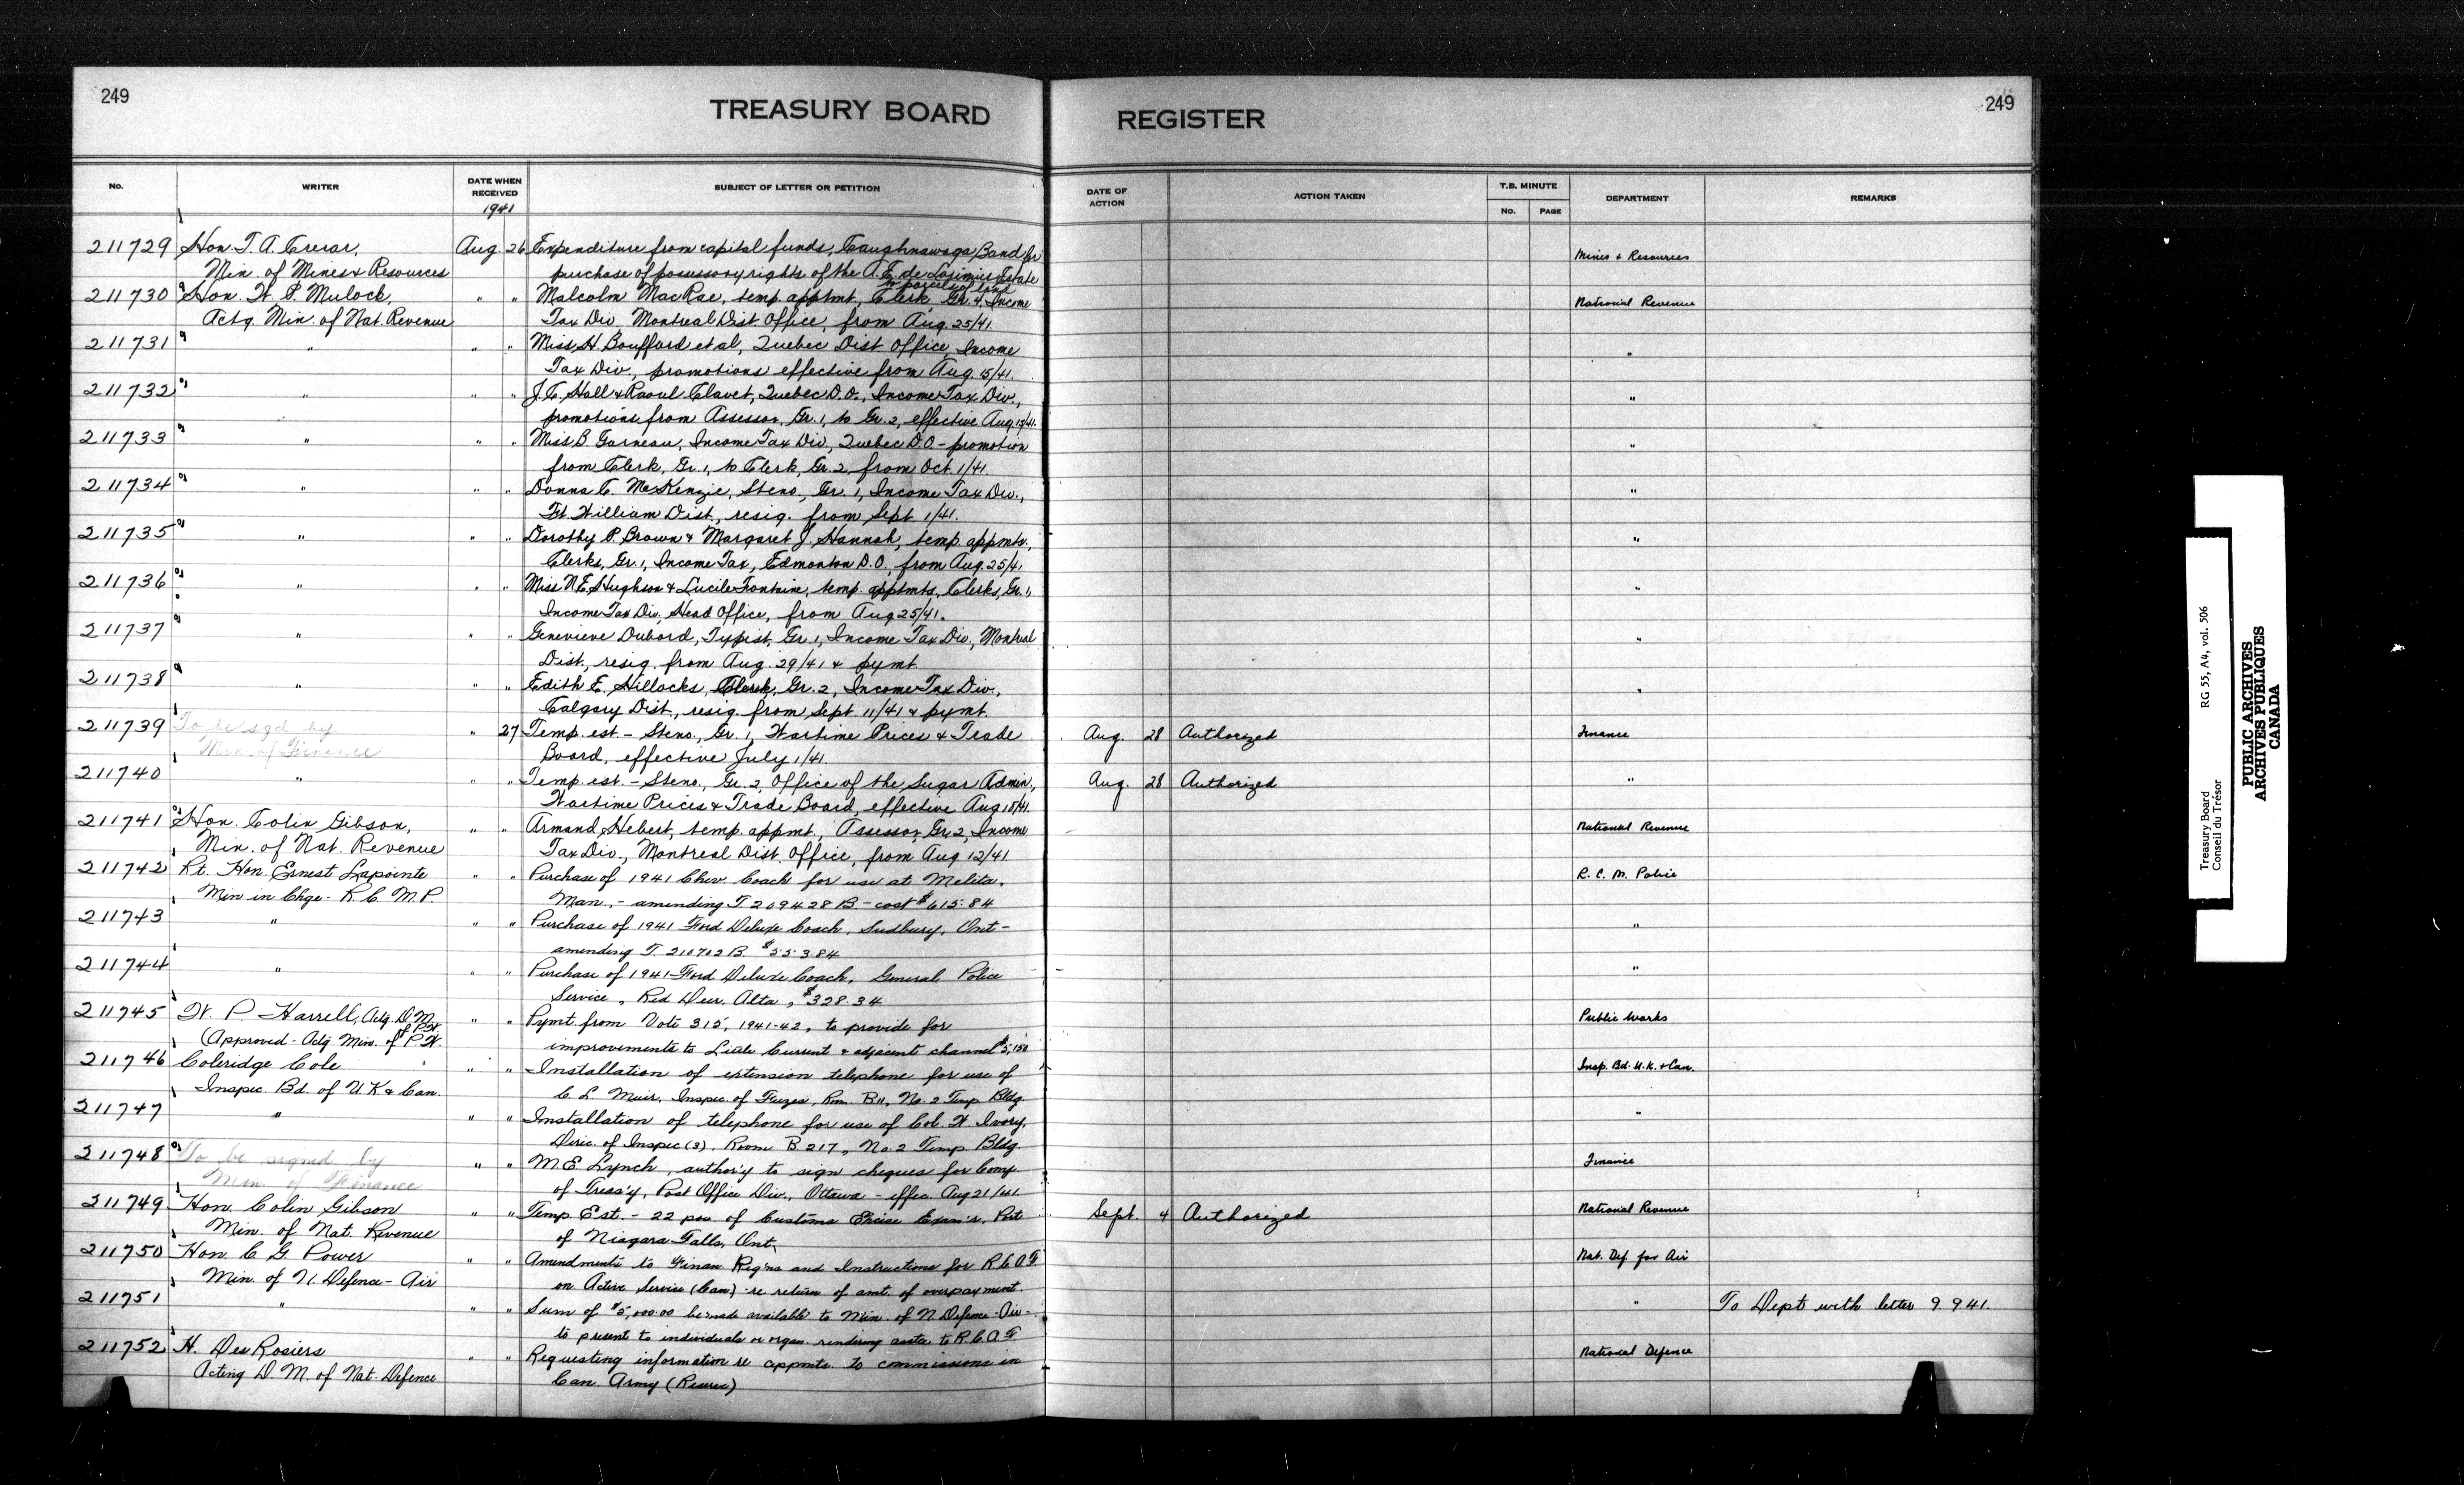 249
TREASURY BOARD REGISTER
249
No. WRITER DATE WHEN RECEIVED SUBJECT OF LETTER OR PETITION DATE OF ACTION ACTION TAKEN T.B. MINUTE No. PAGE DEPARTMENT REMARKS
1941
211729 Hon. T. A. Crerar, Aug. 26 Expenditure from capital funds, Caughnawaga Band for Mines & Resources
Min. of Mines & Resources purchase of possessory rights of the A. E. de Lorimier Estate
to parcel of land
211730 Hon. W. P. Mulock, " " Malcolm MacRae, temp. apptmt, Clerk, Gr. 4, Income National Revenue
Actg. Min. of Nat. Revenue Tax Div, Montreal Dist. Office, from Aug. 25/41.
211731 " " " Miss H. Bouffard et al, Quebec Dist. Office, Income "
Tax Div., promotions effective from Aug. 15/41.
211732 " " " J. C. Hall & Raoul Clavet, Quebec D.O., Income Tax Div., "
promotions from Assessor, Gr. 1, to Gr. 2, effective Aug. 15/41.
211733 " " " Miss B. Garneau, Income Tax Div, Quebec D.O. - promotion "
from Clerk, Gr. 1, to Clerk, Gr. 2, from Oct. 1/41.
211734 " " " Donna C. McKenzie, Steno, Gr. 1, Income Tax Div., "
Ft. William Dist., resig. from Sept. 1/41.
211735 " " " Dorothy P. Brown & Margaret J. Hannah, temp. appmts., "
Clerks, Gr. 1, Income Tax, Edmonton D.O., from Aug. 25/41
211736 " " " Miss N. E. Hughson & Lucile Fontaine, temp. apptmts, Clerks, Gr. 1, "
Income Tax Div, Head Office, from Aug 25/41.
211737 " " " Genevieve Dubord, Typist, Gr. 1, Income Tax Div., Montreal "
Dist., resig. from Aug. 29/41 & pymt.
211738 " " " Edith E. Hillocks, Clerk, Gr. 2, Income Tax Div., "
Calgary Dist., resig. from Sept. 11/41 & pymt.
211739 To be sgd by " 27 Temp. est. - Steno., Gr. 1, Wartime Prices & Trade Aug. 28 Authorized Finance
Min. of Finance Board, effective July 1/41.
211740 " " " Temp est. - Steno., Gr. 2, Office of the Sugar Admin., Aug. 28 Authorized "
Wartime Prices & Trade Board, effective Aug 18/41.
211741 Hon. Colin Gibson, " " Armand Hebert, temp. appmt., Assessor, Gr. 2, Income National Revenue
Min. of Nat. Revenue Tax Div., Montreal Dist. Office, from Aug. 12/41.
211742 Rt. Hon. Ernest Lapointe " " Purchase of 1941 Chev. Coach for use at Melita, R. C. M. Police
Min in Chge - R.C.M.P. Man., - amending T 209428 B - cost $615.84
211743 " " " Purchase of 1941 Ford Deluxe Coach, Sudbury, Ont - "
amending T. 210702 B. $553.84
211744 " " " Purchase of 1941 Ford Deluxe Coach, General Police "
Service, Red Deer, Alta, $328.34
211745 W. P. Harrell, Actg. D.M. of P.W. " " Pymt. from Vote 315, 1941-42, to provide for Public Works
(Approved - Actg Min. of P.W. improvements to Little Current & adjacent channel $5,150
211746 Coleridge Cole " " Installation of extension telephone for use of Insp. Bd. U.K. & Can.
Inspec. Bd. of U.K. & Can. C. L. Muir, Inspec. of Fuzes, Rm. B11, No. 2 Temp Bldg.
211747 " " " Installation of telephone for use of Col. W. Ivory, "
Direc. of Inspec (3). Room B 217, No. 2 Temp. Bldg.
211748 To be signed by " " M. E. Lynch, author'y to sign cheques for Comp Finance
Min. of Finance of Treas'y, Post Office Div., Ottawa - effec. Aug 21/41.
211749 Hon. Colin Gibson " " Temp Est. - 22 pos. of Customs Excise Exam'r, Port Sept. 4 Authorized National Revenue
Min. of Nat. Revenue of Niagara Falls, Ont.
211750 Hon. C. G. Power " " Amendments to Finan. Reg'ns and Instructions for R.C.A.F. Nat. Def. for Air
Min. of N. Defence - Air on Active Service (Can) re return of amt. of overpayment.
211751 " " " Sum of $5,000.00 be made available to Min. of N. Defence - Air - " To Dept with letter 9.9.41.
to present to individuals or organ. rendering assta to R.C.A.F.
211752 H. DesRosiers " " Requesting information re appmts. to commissions in National Defence
Acting D.M. of Nat. Defence Can. Army (Reserve)
Treasury Board RG 55, A4, vol. 506
Conseil du Trésor
PUBLIC ARCHIVES
ARCHIVES PUBLIQUES
CANADA